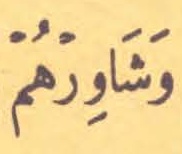 وَشَاوِرْهُمْ